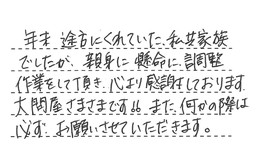 年末 途方にくれていた、私共家族
でしたが、親身に懸命に、調整
作業をして頂き、心より感謝しております。
大問屋さまさまです!! また、何かの際は
必ず、お願いさせていただきます。